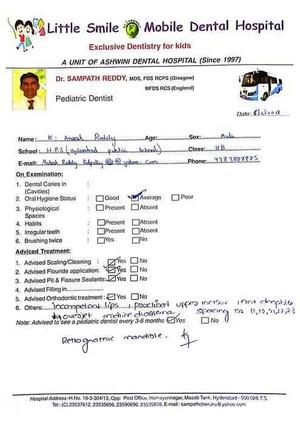 Little Smile Mobile Dental Hospital
Exclusive Dentistry for kids
A UNIT OF ASHWINI DENTAL HOSPITAL (Since 1997)
Dr. SAMPATH REDDY, MDS, FDS RCPS (Glasgow)
MFDS RCS (England)
Pediatric Dentist
Date:
Name : K. Reddy Age: Sex: Male
School : H.P.S (Hyderabad public School) Class: 8B
E-mail: Phone:
On Examination:
1. Dental Caries in (Cavities) :
2. Oral Hygiene Status : Good Average Poor
3. Physiological Spaces : Present Absent
4. Habits : Present Absent
5. Irregular teeth : Present Absent
6. Brushing twice : Yes No
Adviced Treatment:
1. Advised Scaling/Cleaning : Yes No
2. Advised Flouride application: Yes No
3. Advised Pit & Fissure Sealants: Yes No
4. Advised Filling in
5. Advised Orthodontic treatment : Yes No
6. Others: Incompetent lips, upper incisor
overjet midline diastema, spacing
Note: Advised to see a pediatric dentist every 3-6 months Yes No
Retrognathic mandible.
Hospital Address: H.No. 10-3-304/13, Opp: Post Office, Humayunagar, Masab Tank, Hyderabad - 500 028 T.S.
Tel: E-mail :